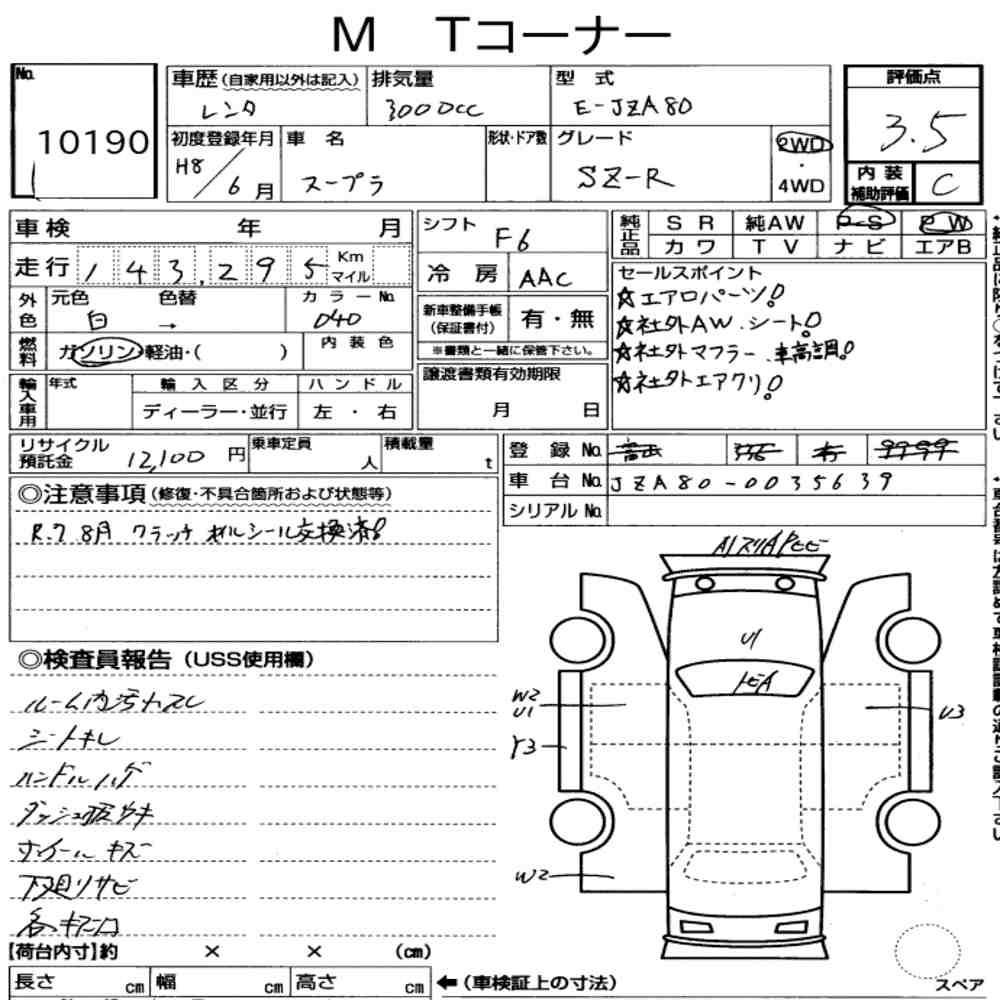 M Tコーナー
No.
10190
車歴(自家用以外は記入)
レンタ
排気量
3000cc
型式
E-JZA80
評価点
3.5
内装補助評価
C
初度登録年月
H8/6月
車名
スープラ
形状・ドア数
グレード
SZ-R
2WD
・
4WD
車検 年 月
走行 143,295 Km マイル
シフト
F6
冷房 AAC
純正品 SR 純AW P-S P-W
カワ TV ナビ エアB
外色 元色 色替 カラーNo.
白 → 040
燃料 ガソリン・軽油・( )
内装色
新車整備手帳(保証書付) 有・無
※書類と一緒に保管下さい。
セールスポイント
☆エアロパーツ!
☆社外AW.シート!
☆社外マフラー.車高調!
☆社外エアクリ!
輸入車用 年式 輸入区分 ハンドル
ディーラー・並行 左・右
譲渡書類有効期限
月 日
リサイクル預託金 12,100円
乗車定員 人
積載量 t
登録No.
車台No. JZA80-0035639
シリアルNo.
◎注意事項(修復・不具合箇所および状態等)
R.7 8月 クラッチ オイルシール交換済!
◎検査員報告(USS使用欄)
ルーム内汚れスレ
シートキレ
ハンドルハゲ
ダッシュ板ウキ
ホイールキズ
下廻りサビ
各キズ凹
A1
U1
W2
U1
Y3
U3
W2
【荷台内寸】約 × × (cm)
長さ cm 幅 cm 高さ cm
←(車検証上の寸法)
スペア